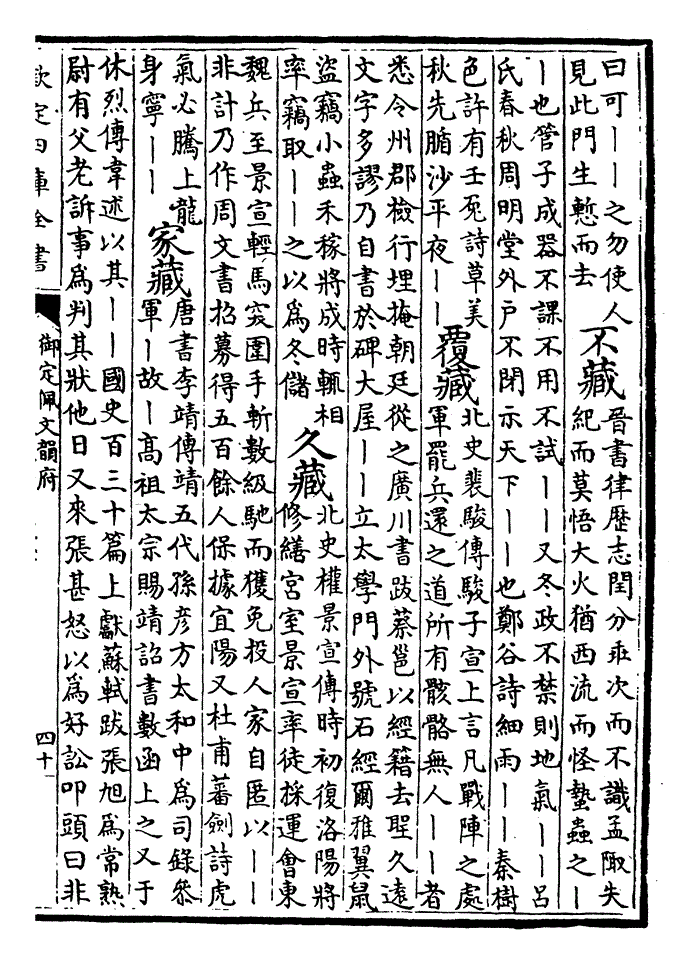 曰可丨丨之勿使人
見此門生慙而去
不藏
晉書律歷志閏分乖次而不識孟陬失
紀而莫悟大火猶西流而怪蟄蟲之丨
丨也管子成器不課不用不試丨丨又冬政不禁則地氣丨丨呂
氏春秋周明堂外戶不閉示天下丨丨也鄭谷詩細雨丨丨秦樹
色許有壬兎詩草美
秋先腯沙平夜丨丨
覆藏
北史裴駿傳駿子宣上言凡戰陣之處
軍罷兵還之道所有骸骼無人丨丨者
悉令州郡檢行埋掩朝廷從之廣川書跋蔡邕以經籍去聖久遠
文字多謬乃自書於碑大屋丨丨立太學門外號石經爾雅翼鼠
盜竊小蟲禾稼將成時輒相
率竊取丨丨之以為冬儲
久藏
北史權景宣傳時初復洛陽將
修繕宮室景宣率徒採運會東
魏兵至景宣輕馬突圍手斬數級馳而獲免投人家自匿以丨丨
非計乃作周文書招募得五百餘人保據宜陽又杜甫蕃劍詩虎
氣必騰上龍
身寧丨丨
家藏
唐書李靖傳靖五代孫彦方太和中為司錄叅
軍丨故丨高祖太宗賜靖詔書數函上之又于
休烈傳韋述以其丨丨國史百三十篇上獻蘇軾跋張旭為常熟
尉有父老訴事為判其狀他日又來張甚怒以為好訟叩頭曰非
欽定四庫全書
御定佩文韻府
四十